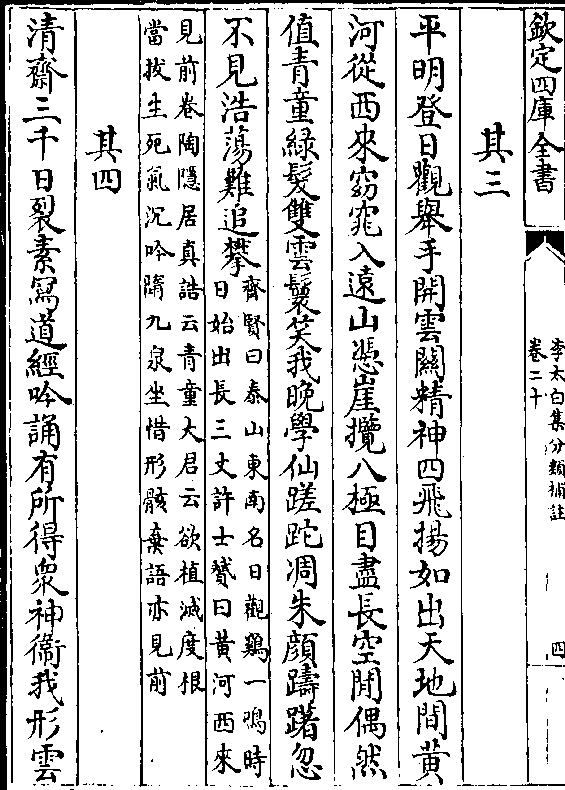 欽定四庫全書
李太白集分類補註
卷二十
四
其三
平明登日觀舉手開雲關精神四飛揚如出天地間黃
河從西來窈窕入遠山憑崖攬八極目盡長空閒偶然
值青童綠髮雙雲鬟笑我晚學仙蹉跎凋朱顏躊躇忽
不見浩蕩難追攀
齊賢曰泰山東南名日觀鷄一鳴時
日始出長三丈許士贇曰黃河西來
見前卷陶隱居真誥云青童大君云欲植滅度根
當拔生死氣沉吟隋九泉坐惜形骸棄語亦見前
其四
清齋三千日裂素寫道經吟誦有所得衆神衞我形雲